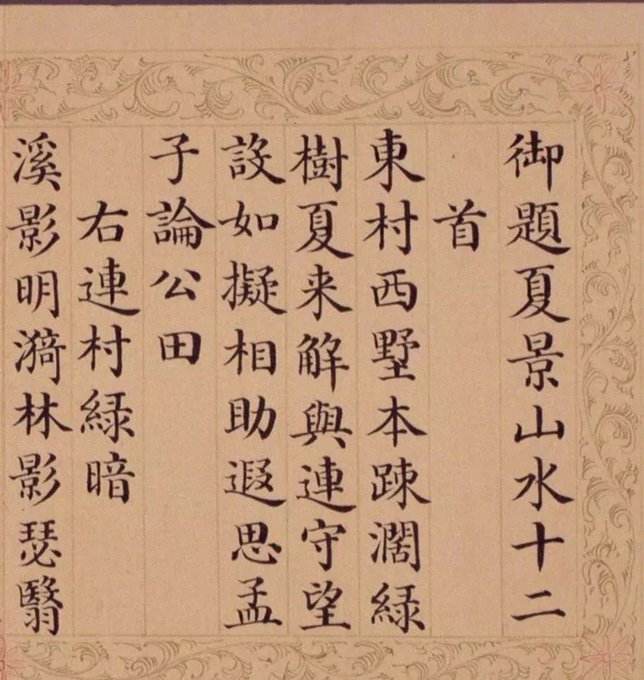 御題夏景山水十二
首
東村西墅本踈濶緑
樹夏来解與連守望
設如擬相助遐思孟
子論公田
右連村緑暗
溪影明漪林影瑟翳